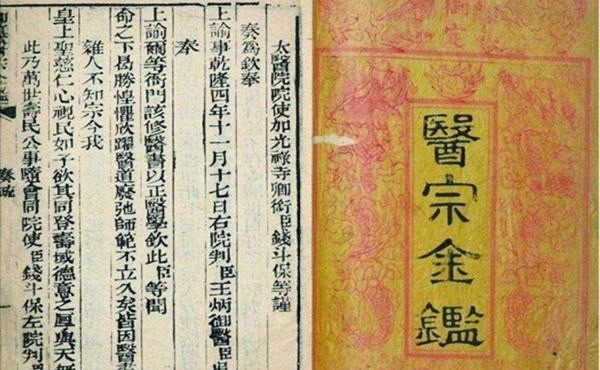 醫宗金鑑
太醫院院使加光祿寺卿銜臣錢斗保等謹
奏為欽奉
上諭事乾隆四年十一月十七日右院判臣王炳御醫臣吳
奉
上諭爾等衙門該修醫書以正醫學欽此臣等聞
命之下曷勝惶懼欣躍醫道廢弛師範不立久矣皆因醫書
雜人不知宗今我
皇上聖慈仁心視民如子欲其同登壽域德意之厚與天無
此乃萬世壽民公事隨會同院使臣錢斗保左院判臣
奏疏